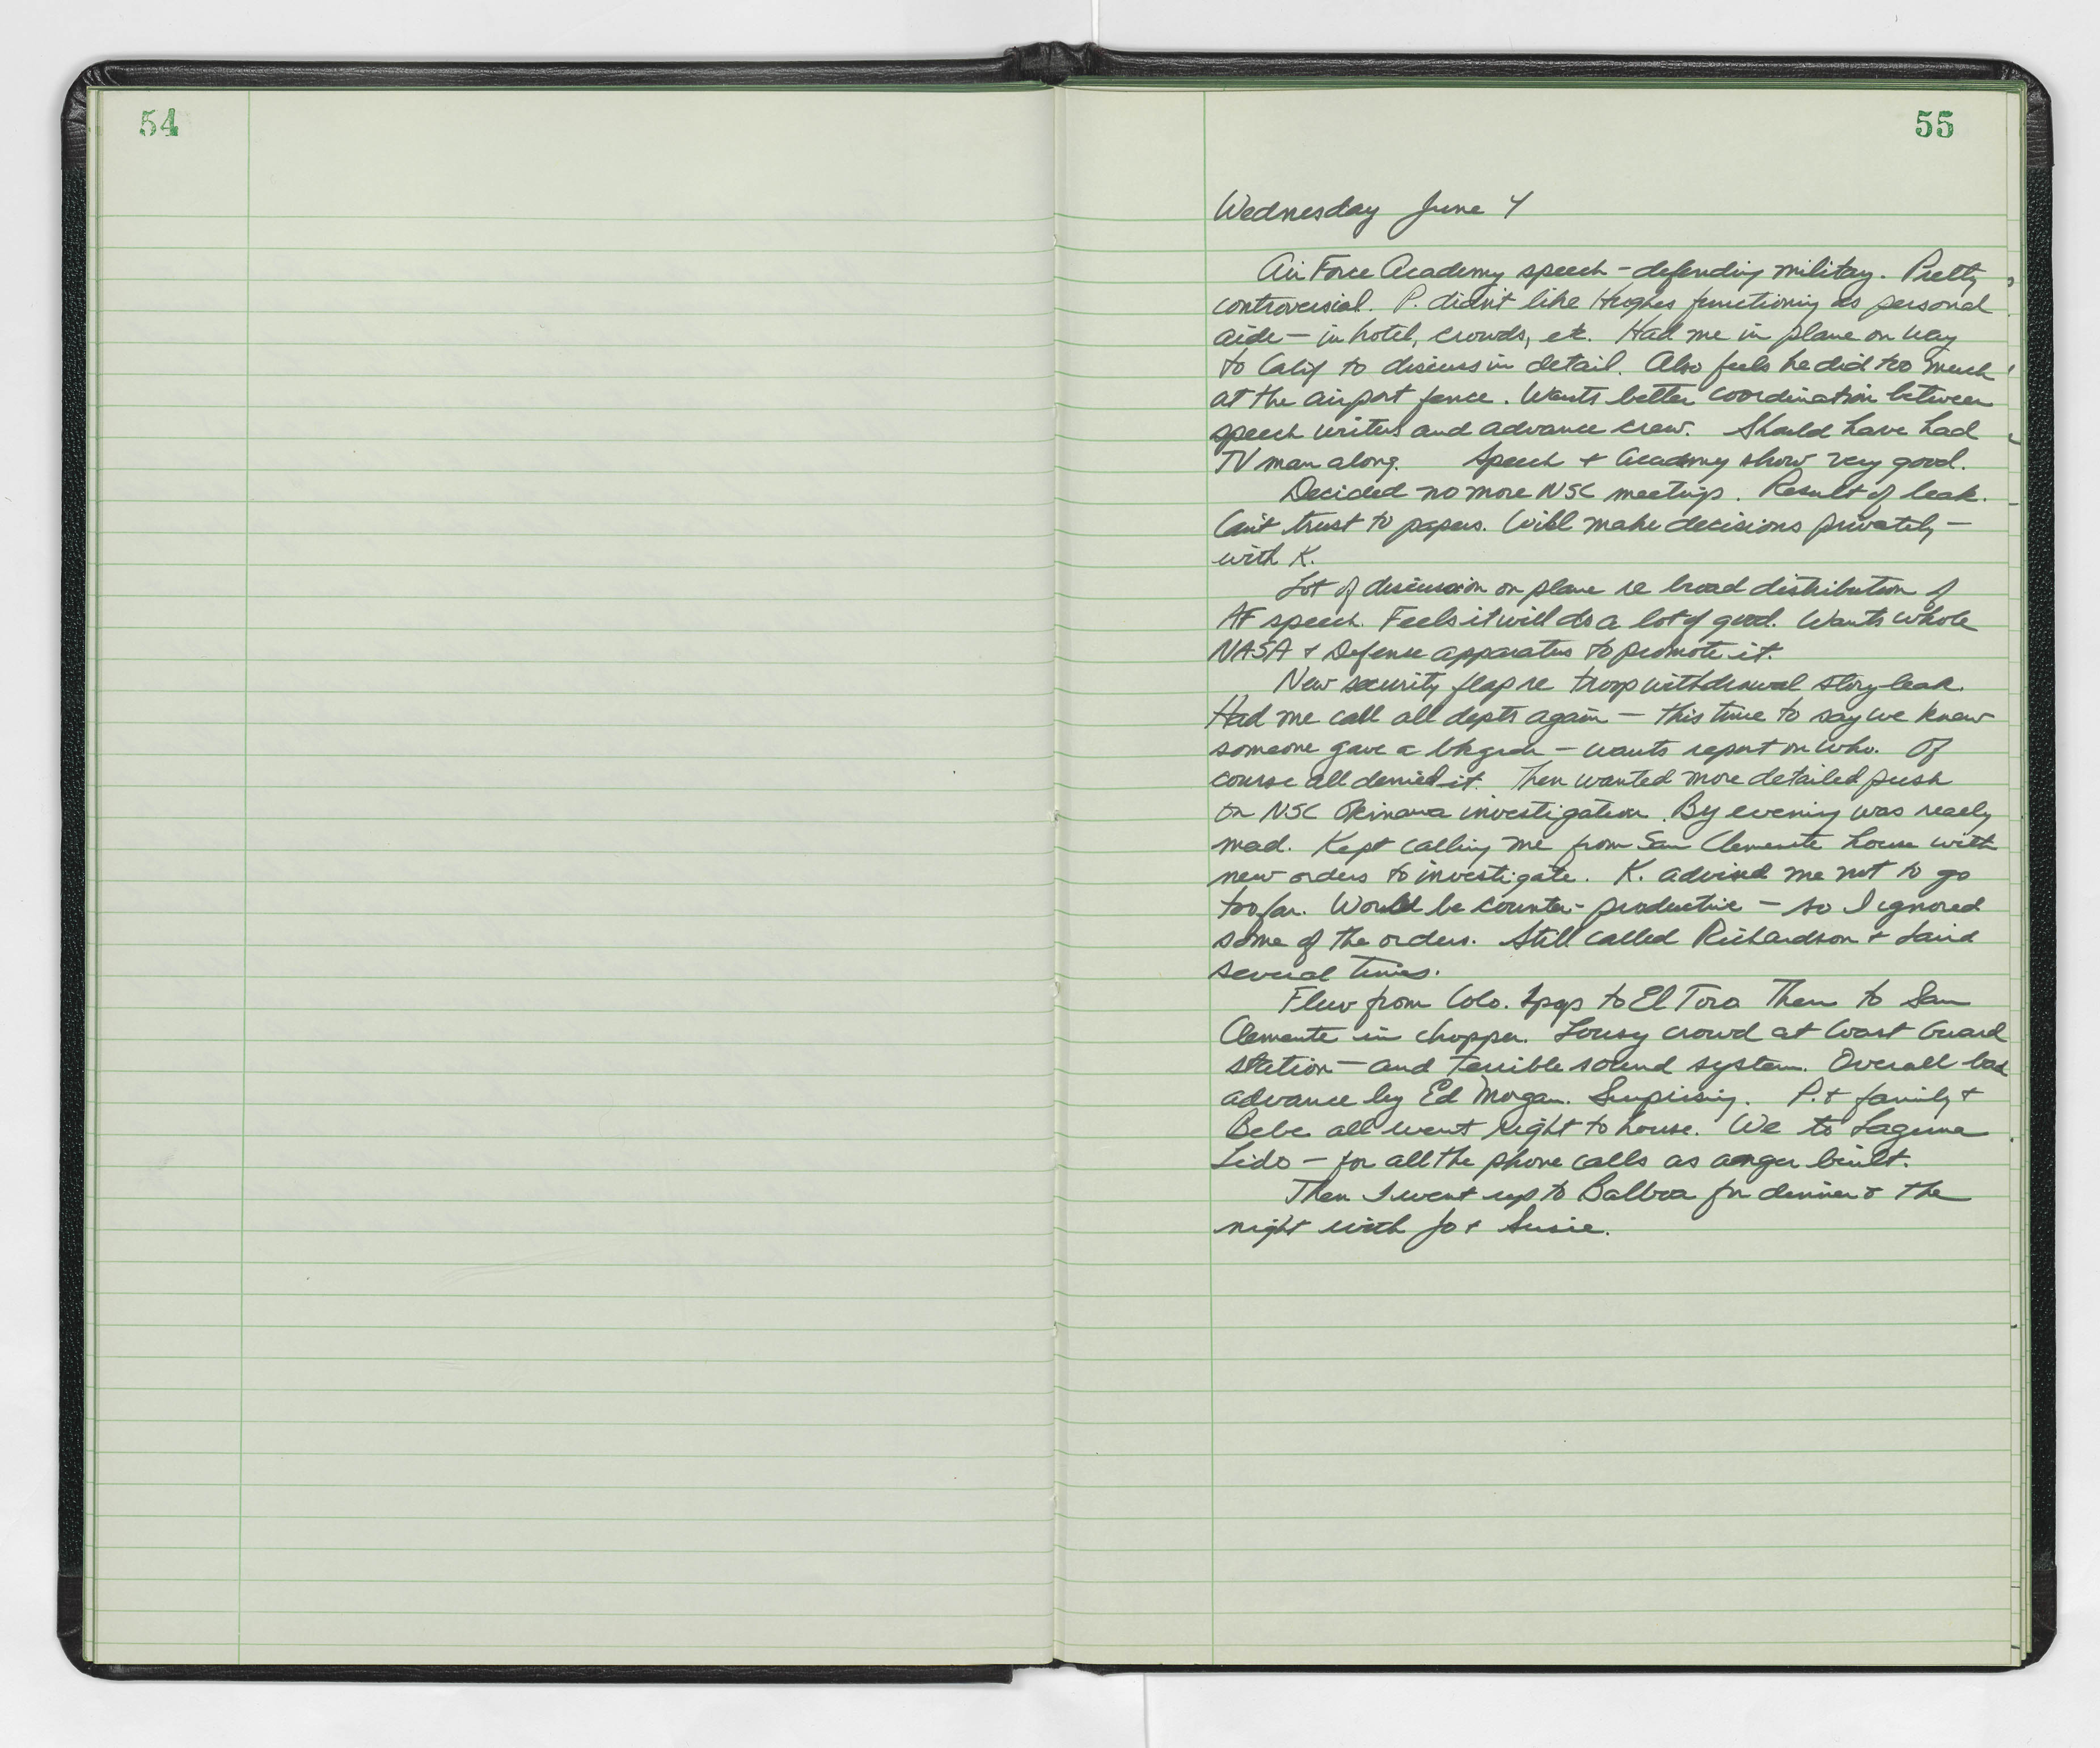 54
55
Wednesday June 4
Air Force Academy speech - defending military. Pretty
controversial. P. didn't like Hughes functioning as personal
aide - in hotel, crowds, etc. Had me in plane on way
to Calif to discuss in detail. Also feels he did too much
at the airport fence. Wants better coordination between
speech writers and advance crew. Should have had
TV man along. Speech + Academy show very good.
Decided no more NSC meetings. Result of leak.
Can't trust to papers. Will make decisions privately -
with K.
Lot of discussion on plane re broad distribution of
AF speech. Feels it will do a lot of good. Wants whole
NASA + Defense apparatus to promote it.
New security flap re troop withdrawal story leak.
Had me call all depts again - this time to say we know
someone gave a bkgrdr - wants report on who. Of
course all denied it. Then wanted more detailed push
on NSC Okinawa investigation. By evening was really
mad. Kept calling me from San Clemente house with
new orders to investigate. K. advised me not to go
too far. Would be counter-productive - so I ignored
some of the orders. Still called Richardson + Laird
several times.
Flew from Colo. Spgs to El Toro Then to San
Clemente in chopper. Lousy crowd at Coast Guard
station - and terrible sound system. Overall bad
advance by Ed Morgan. Surprising. P. + family +
Bebe all went right to house. We to Laguna
Lido - for all the phone calls as anger built.
Then I went up to Balboa for dinner & the
night with Jo + Susie.